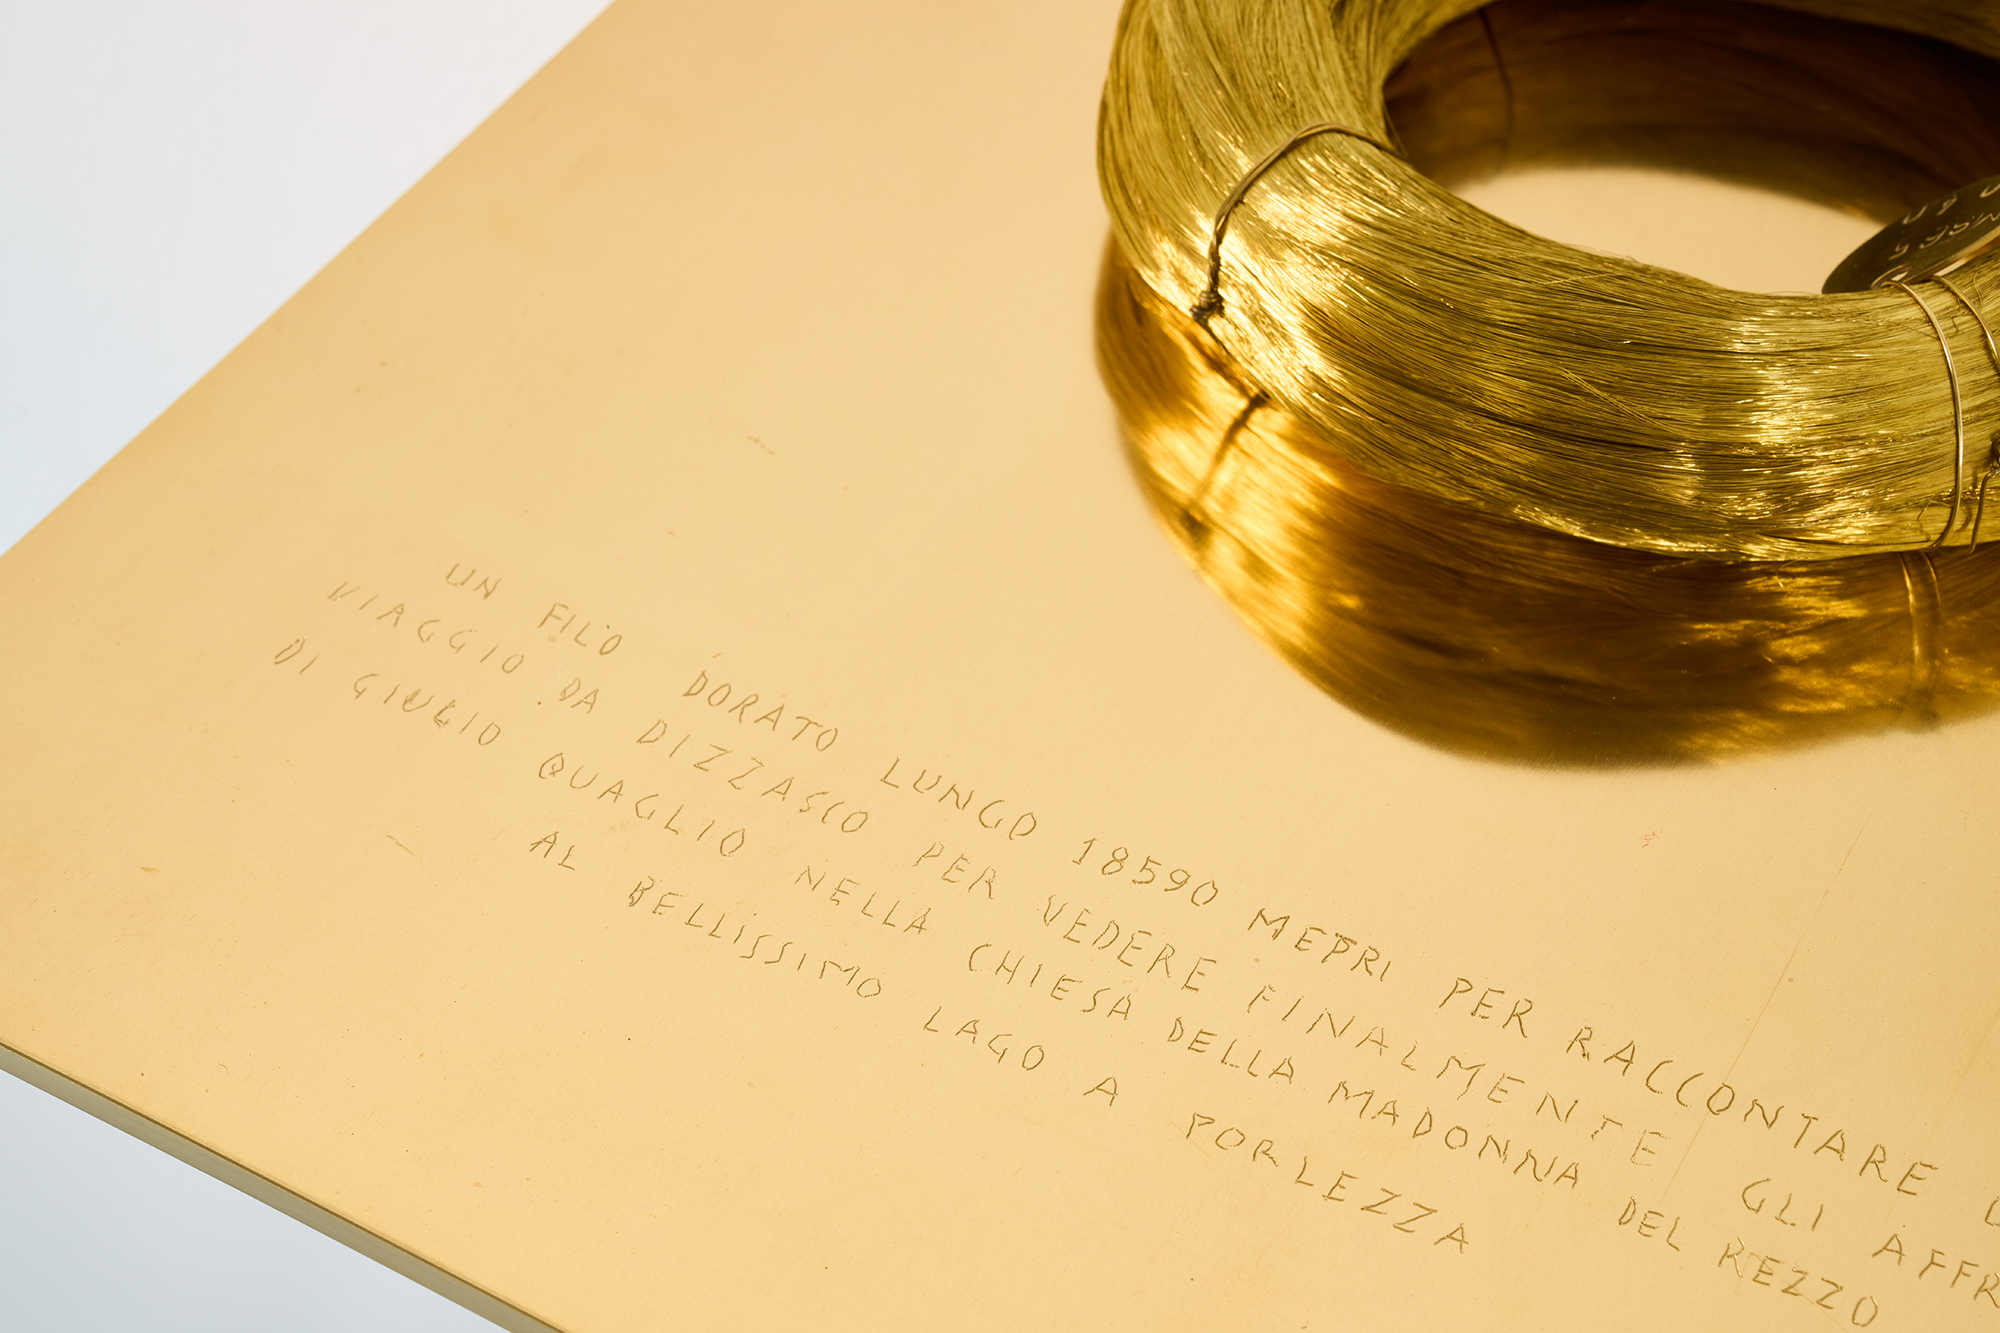 UN FILO DORATO LUNGO 18590 METRI PER RACCONTARE
VIAGGIO DA DIZZASCO PER VEDERE FINALMENTE GLI
DI GIULIO QUAGLIO NELLA CHIESA DELLA MADONNA DEL REZZO
AL BELLISSIMO LAGO A PORLEZZA